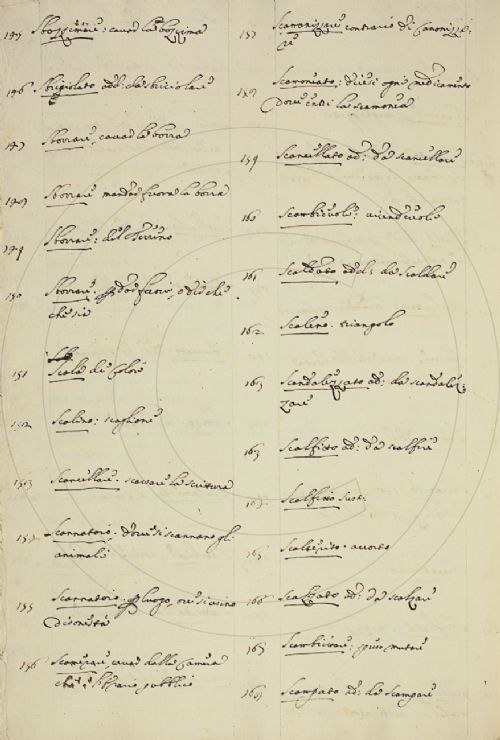 145 Sbozzimare: cavar la bozzima
146 Sbriciolato add: da sbriciolare
147 Sborrare, cavar la borra
148 Sborrare mandar fuora la borra
149 Sborrare: del Terreno
150 Sborrare. dar fuori, o dir che
che sia
151 Scala di colori
152 Scalino: scaglione
153 Scancellare. scassare la scrittura
154 Scannatoio. dove si scannano gl'
animali
155 Scannatoio. luogo, ove si
Disonestà
156 cavar dalla Camera
che è l'Erario pubblico
157 Scanonizzare contrario di Canonizza:
re
158 Scamoniato: dicesi ogni medicamento
dove entri la scamonea
159 Scancellato ad: da scancellare
160 Scambievole: vicendevole
161 Scaldato add: da scaldare
162 Scaleno. triangolo
163 Scandalezzato ad: da scandalez:
zare
163 Scalfito ad: da scalfire
Scalfitto sust:
165 Scalpito. accorto
166 Scalzato ad: da scalzare
Scambiare: pure mutare
Scampato ad: da scampare